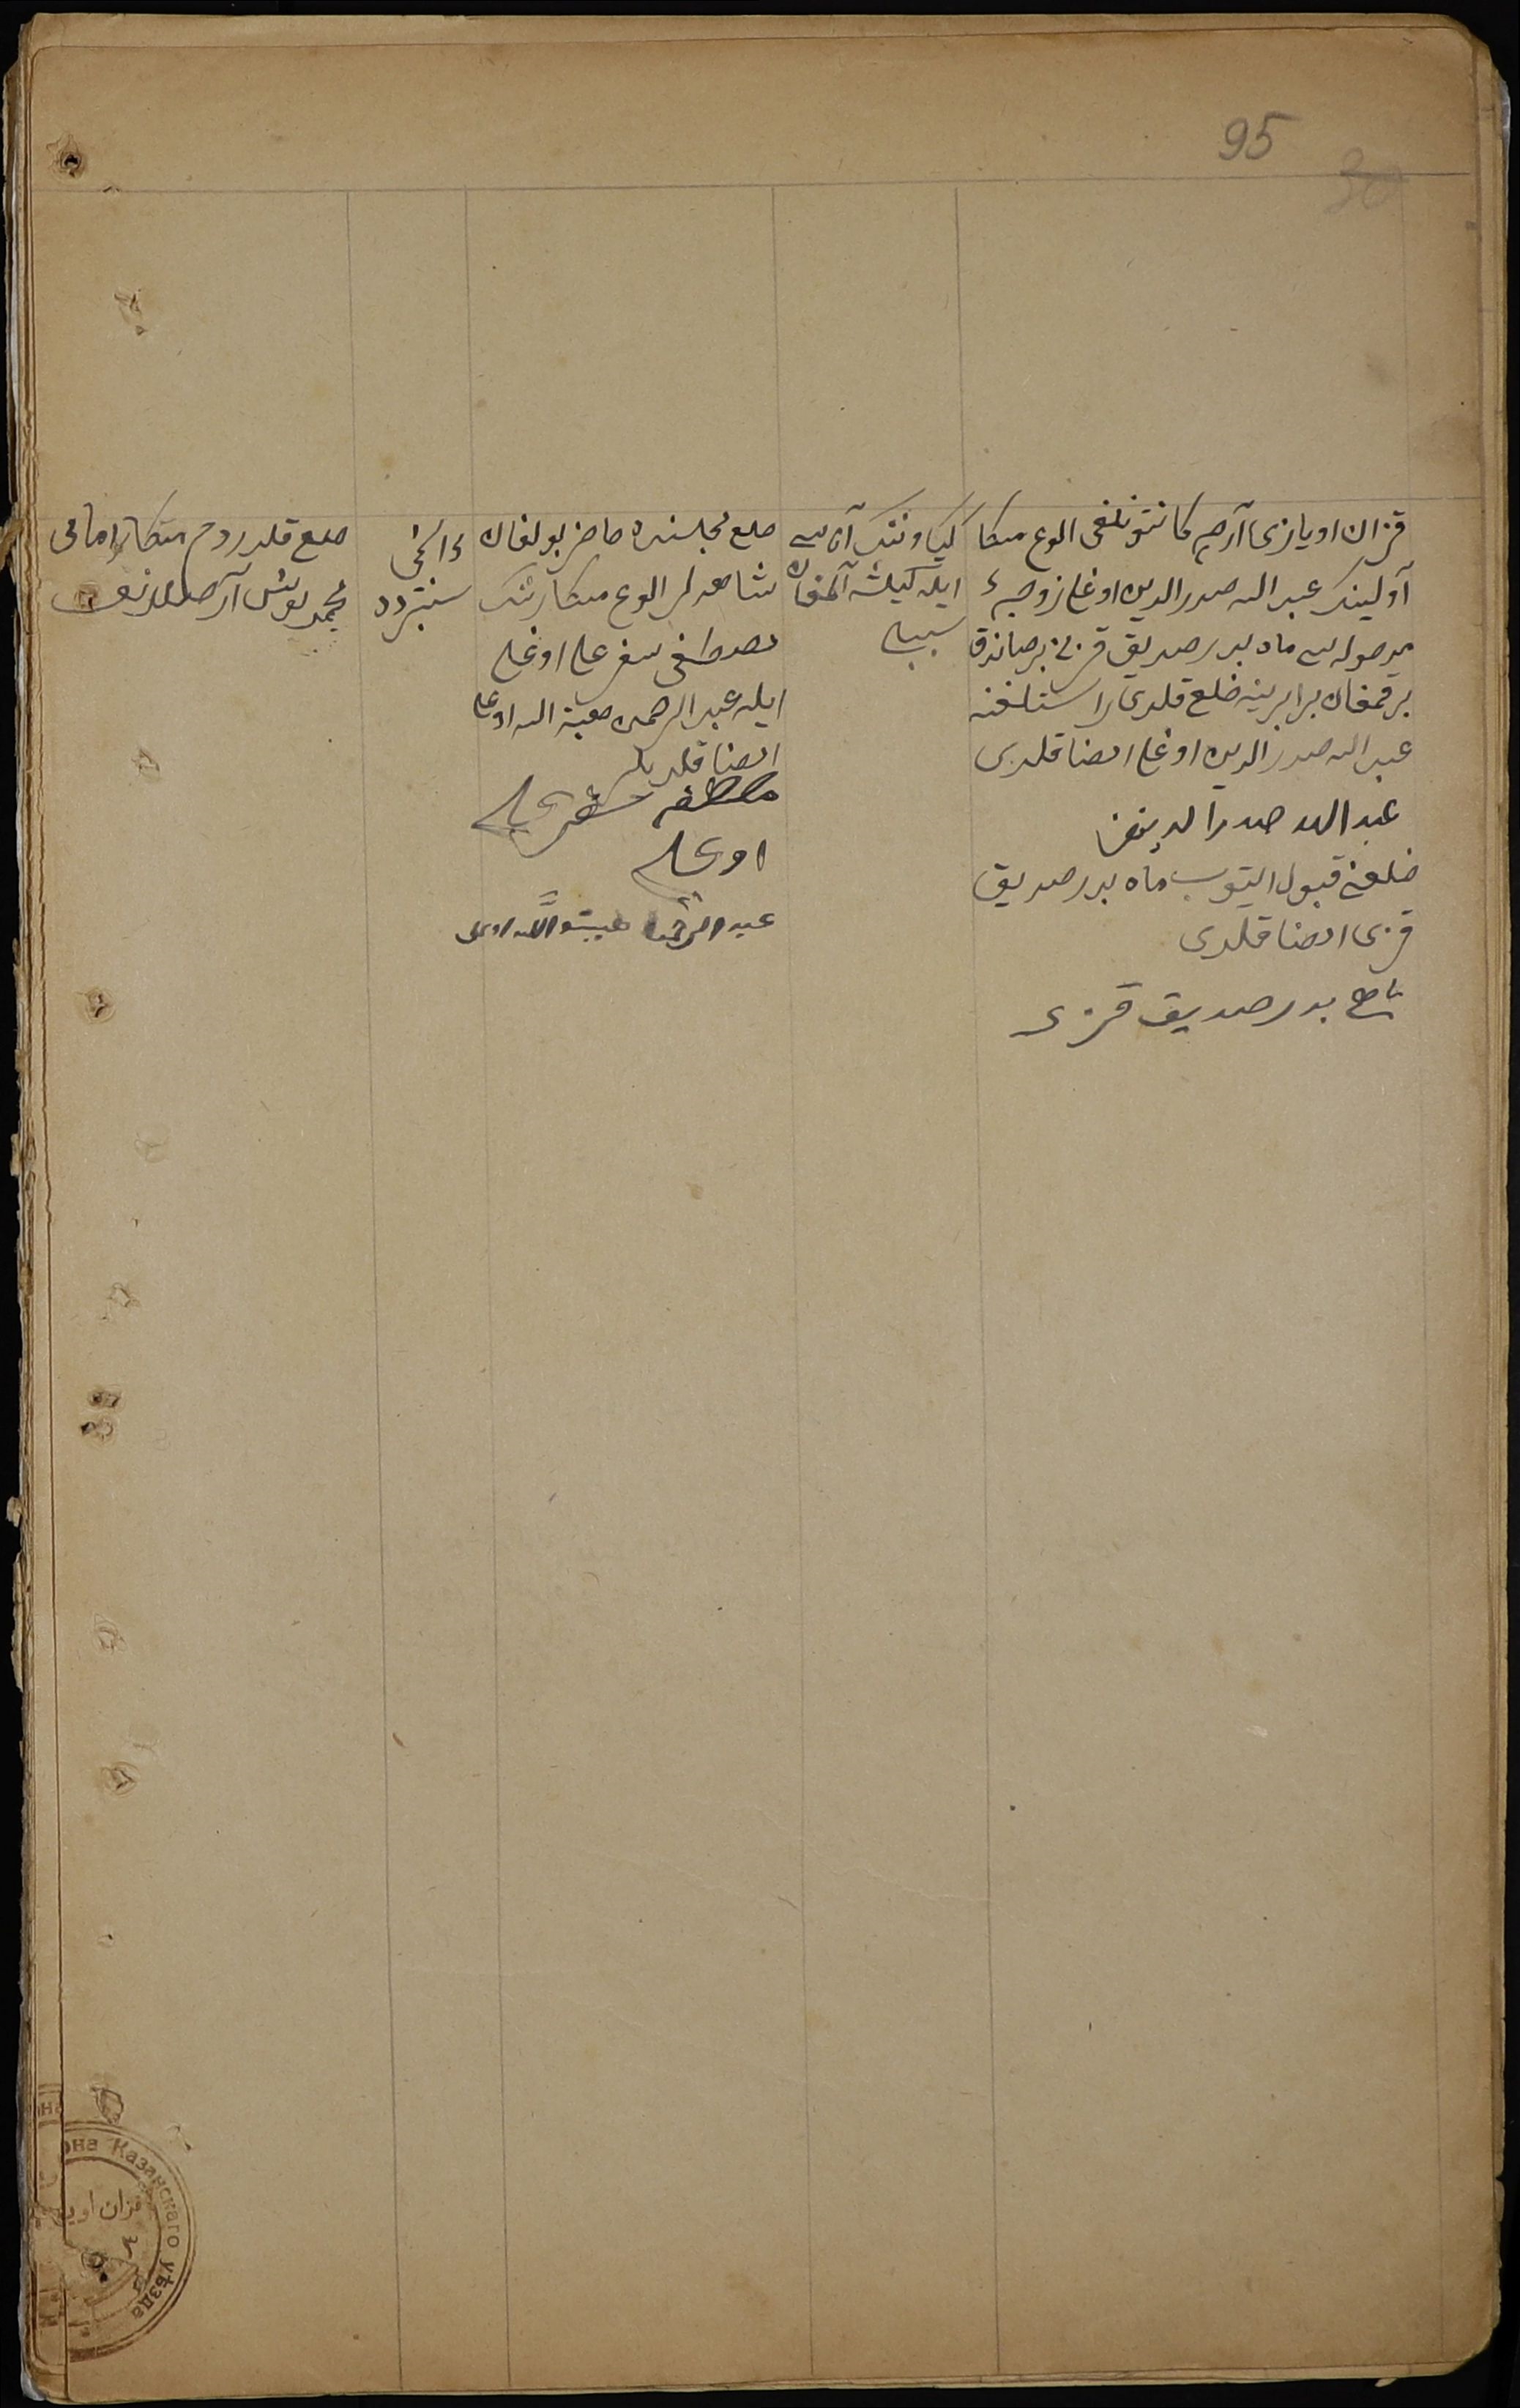 95
30
قزان اويازى آرچه كانتونلغى الوغ منكار
آولينك عبد الله صدرالدين اوغلى زوجهء
مدخوله سى ماه بدر صديق قزينى بر صاندق
برقمغان برابرينه خلع قلدى راستلغنه
عبد الله صدرالدين اوغلى امضا قلدى
عبد الله صدرالدينف
خلعنى قبول ايتوب ماه بدر صديق
قزى امضا قلدى
ماه بدر صديق قزى
كياونتك آناسى
ايله كيلشه آلمغان
سببلى
خلع مجلسنده حاضر بولغان
شاهدلر الوغ منكارنتك
مصطفى سفر على اوغلى
ايله عبد الرحمن هبة الله اوغلى
امضا قلديلر
مصطفى سفر على
اوغلى
عبد الرحمن هبة الله اوغلى
سنتبردە
خلع قلدردم منكار امامى
محمد يونس
она Казанскаго уѣзда
قزان اويا